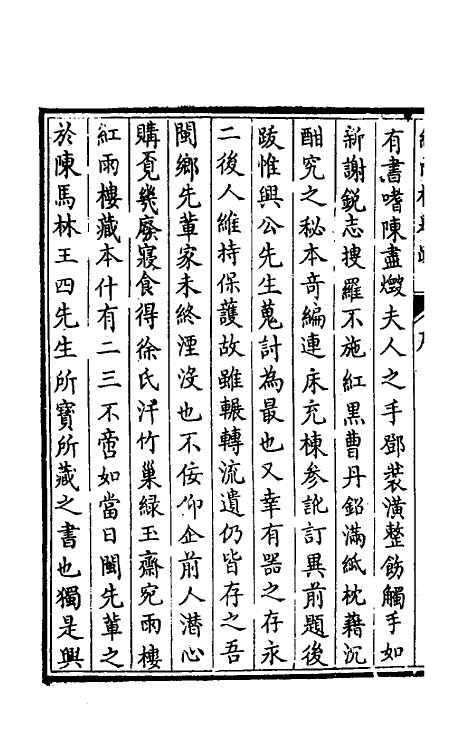 有書嗜陳盡燬夫人之手鄧裝潢整飭觸手如
新謝銳志搜羅不施紅黑曹丹鉛滿紙枕藉沉
酣究之秘本奇編連床充棟參訛訂異前題後
跋惟興公先生蒐討為最也又幸有器之存永
二後人維持保護故雖輾轉流遺仍皆存之吾
閩鄉先輩家未終湮沒也不佞仰企前人潛心
購覔幾廢寢食得徐氏汗竹巢綠玉齋宛雨樓
紅雨樓藏本什有二三不啻如當日閩先輩之
於陳馬林王四先生所寶所藏之書也獨是興